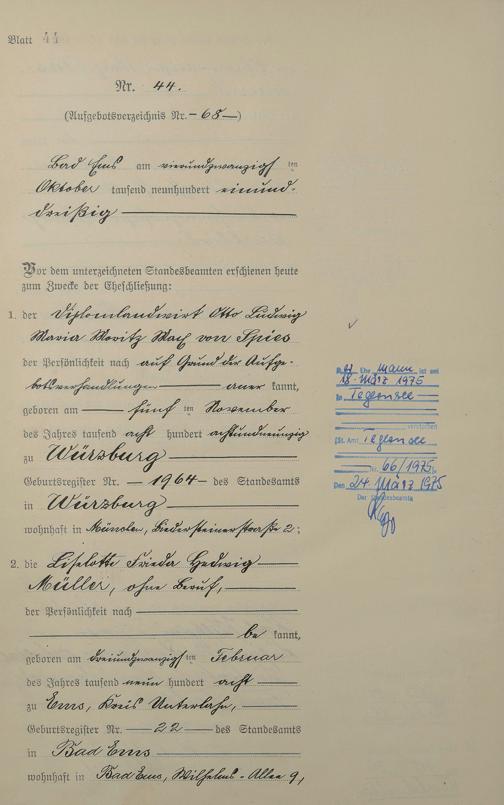 Blatt 44
Nr. 44.
(Aufgebotsverzeichnis Nr. – 68 —)
Bad Ems am vierundzwanzigsten
Oktober tausend neunhundert einund-
dreißig
Vor dem unterzeichneten Standesbeamten erschienen heute
zum Zwecke der Eheschließung:
1. der Diplomlandwirt Otto Ludwig
Maria Moritz Max von Spies
der Persönlichkeit nach auf Grund der Aufge-
botsverhandlungen — aner kannt,
geboren am — fünften November
des Jahres tausend acht hundert achtundneunzig
zu Würzburg
Geburtsregister Nr. — 1964 — des Standesamts
in Würzburg
wohnhaft in München, Biedersteinerstraße 2;
2. die Liselotte Frieda Hedwig
Müller, ohne Beruf,
der Persönlichkeit nach
be kannt,
geboren am dreiundzwanzigsten Februar
des Jahres tausend neun hundert acht
zu Ems, Kreis Unterlahn,
Geburtsregister Nr. — 22 — des Standesamts
in Bad Ems
wohnhaft in Bad Ems, Wilhelms-Allee 9,
Ehemann ist am
18. März 1975
in Tegernsee
verstorben
(St. Amt Tegernsee
Nr. 66/1975)
Den 24. März 1975
Der Standesbeamte